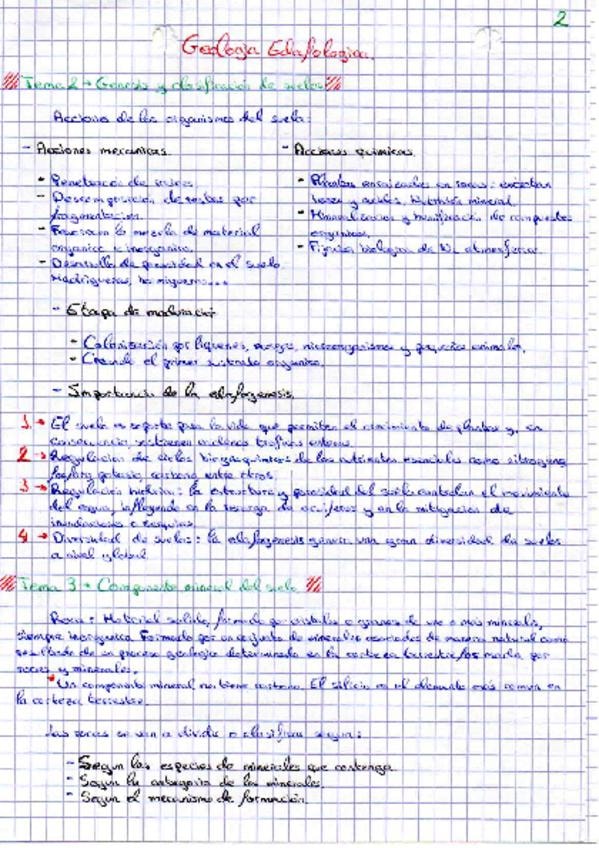 2
Geología Edafologica.
Tema 2 → Genesis y clasificación de suelos
Acciones de los organismos del suelo:
- Acciones mecanicas
- Penetración de raices
- Descomposición de restos por
fragmentacion.
- Favorecen la mezcla de material
organico e inorganico.
- Desarrollo de porosidad en el suelo
Madrigueras, hormigueros...
- Acciones quimicas
- Plantas enraizadas en rocas: excretan
bases y acidos. Nutrición mineral
- Mineralización y humificación de compuestos
organicos.
- Fijación biologica de N₂ atmosferico.
- Etapa de maduración
- Colonización por liquenes, musgos, microorganismos y pequeños animales.
- Creando el primer sustrato organico.
- Importancia de la edafogenesis.
1 → El suelo es soporte para la vida que permiten el crecimiento de plantas y, en
consecuencia, sostienen cadenas troficas enteras.
2 → Regulación de ciclos biogeoquimicos de los nutrientes esenciales como nitrogeno,
fosforo, potasio, carbono entre otros.
3 → Regulación hidrica: la estructura y porosidad del suelo controlan el movimiento
del agua, influyendo en la recarga de acuiferos y en la mitigacion de
inundaciones o sequias.
4 → Diversidad de suelos: la edafogenesis genera una gran diversidad de suelos
a nivel global.
Tema 3 → Componente mineral del suelo
Roca: Material solido, formado por cristales o granos de uno o más minerales,
siempre inorganica. Formado por un conjunto de minerales asociados de manera natural como
resultado de un proceso geologico determinado en la corteza terrestre, formada por
rocas y minerales.
Un componente mineral no tiene carbono. El silicio es el elemento más comun en
la corteza terrestre.
Las rocas se van a dividir o clasificar segun:
- Segun las especies de minerales que contenga.
- Segun la categoria de los minerales.
- Segun el mecanismo de formación.